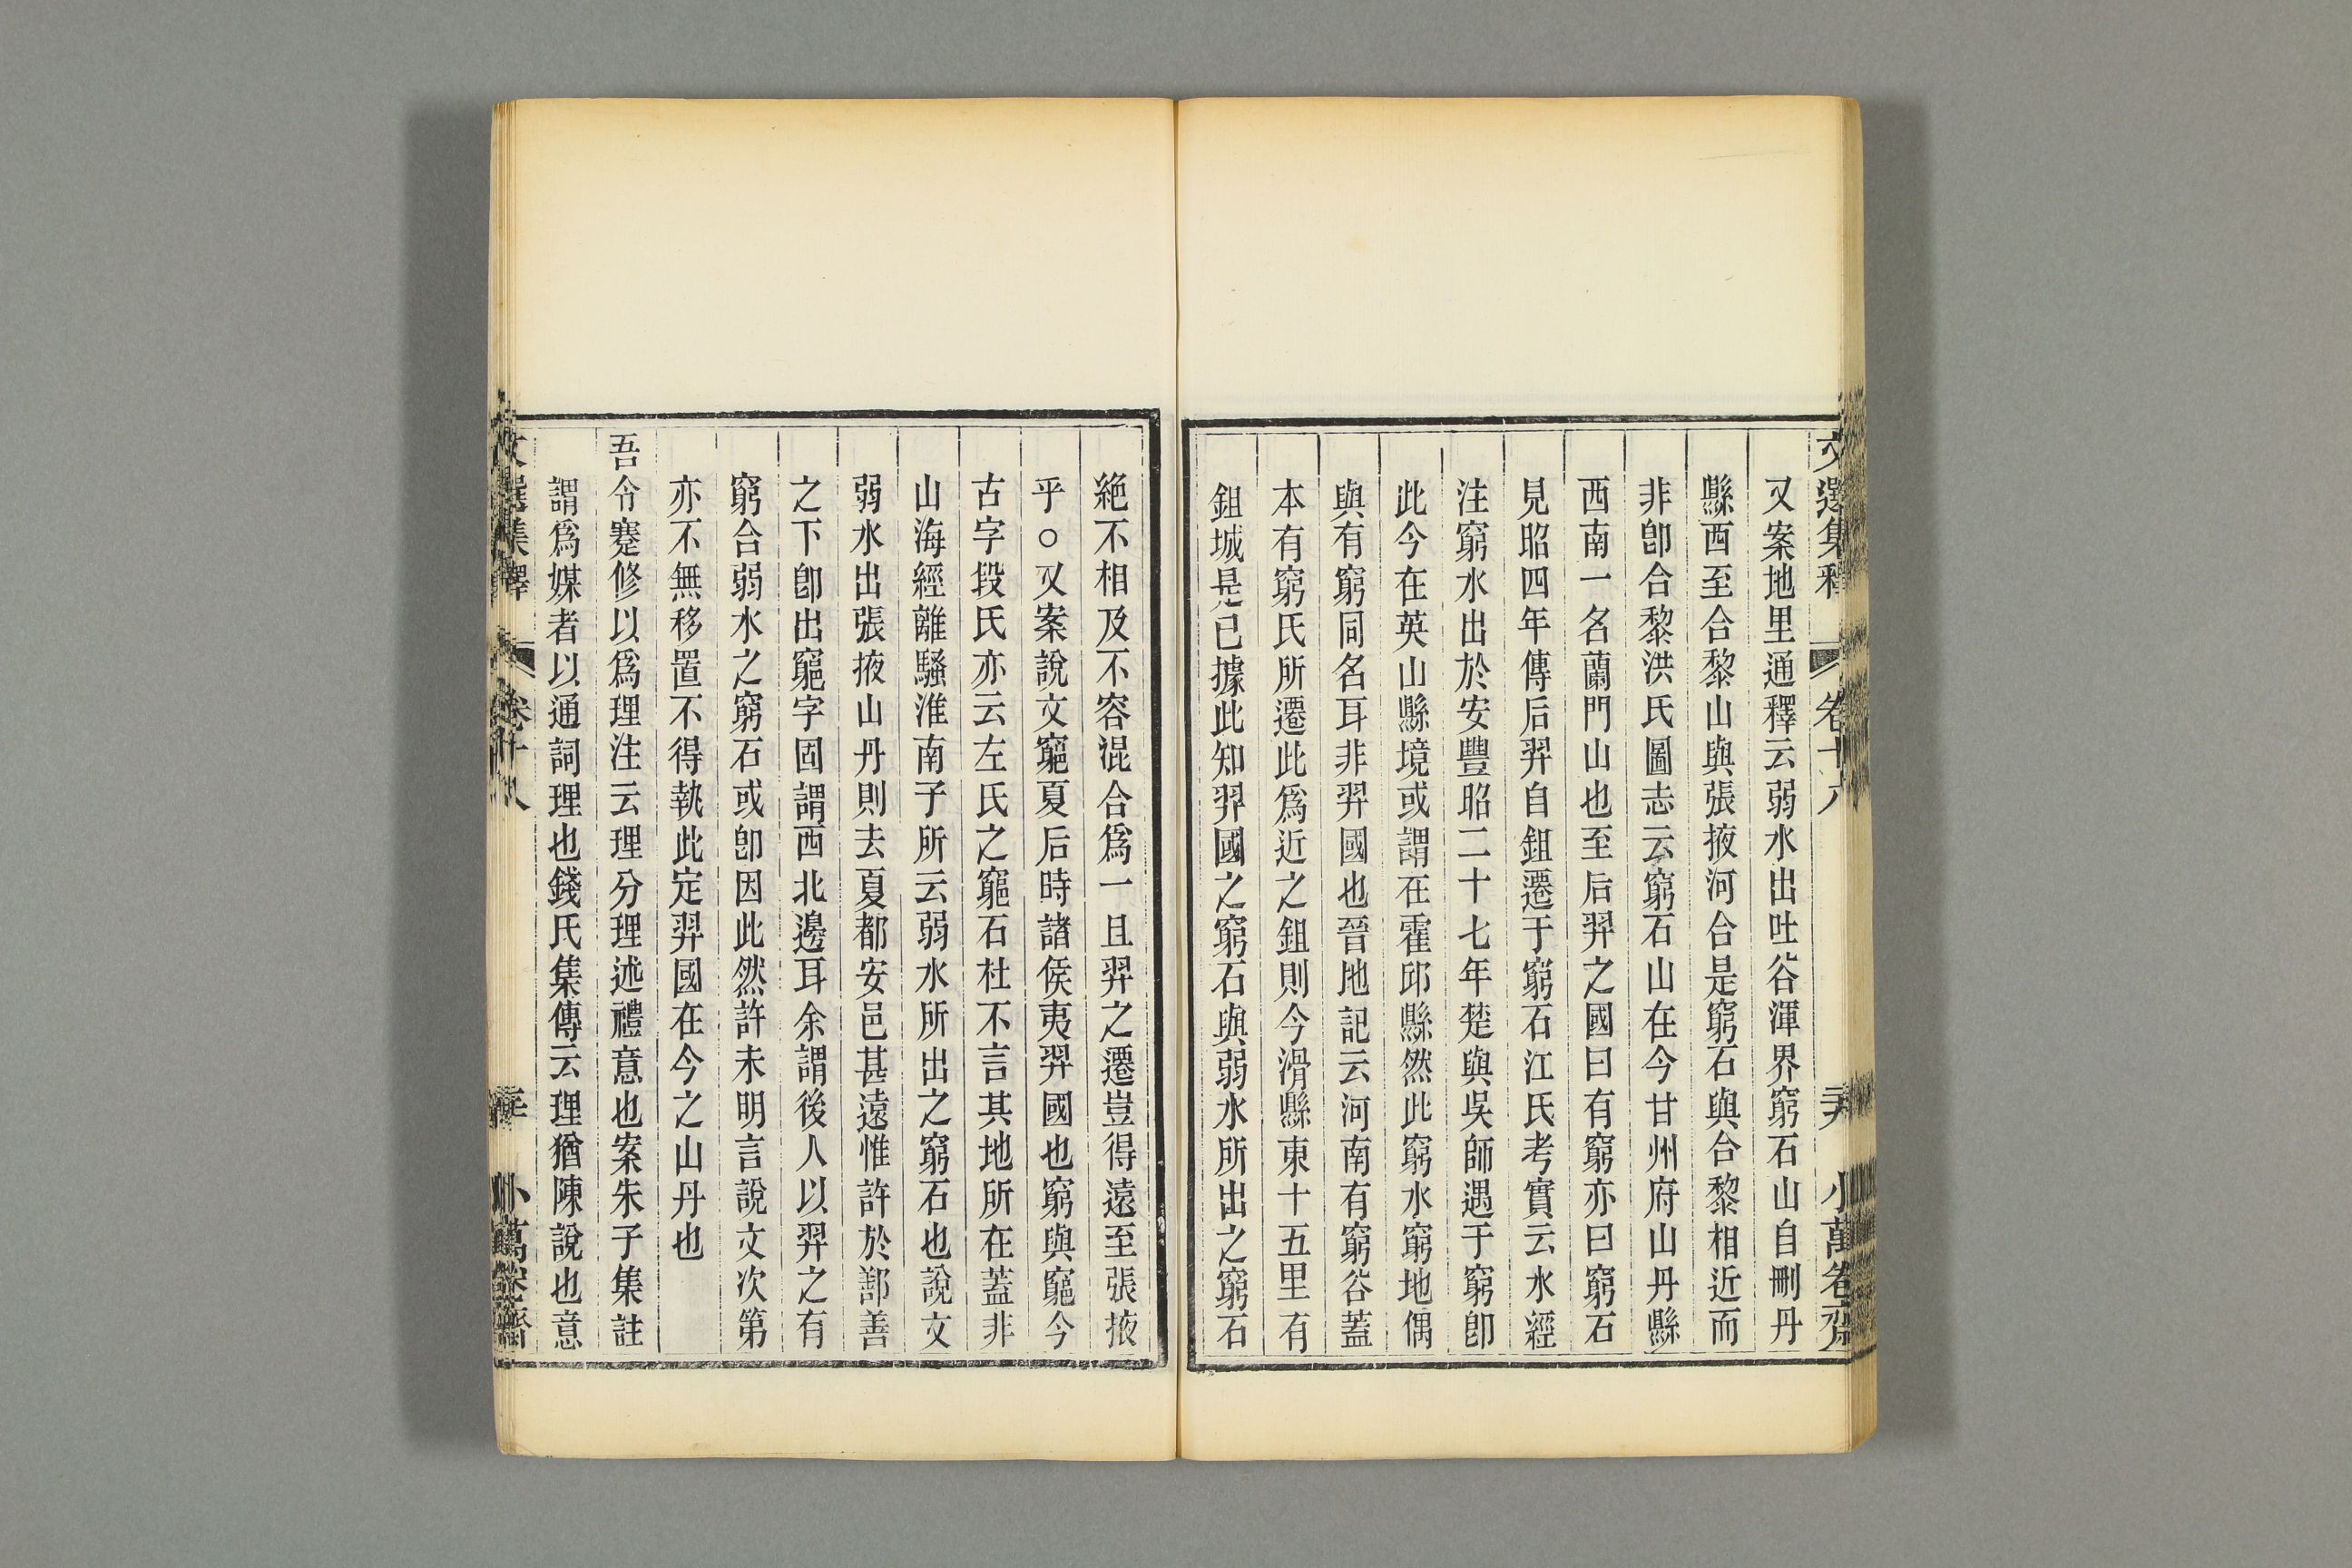 文選集釋 卷十八 小萬卷齋
又案地里通釋云弱水出吐谷渾界窮石山自刪丹
縣西至合黎山與張掖河合是窮石與合黎相近而
非卽合黎洪氏圖志云窮石山在今甘州府山丹縣
西南一名蘭門山也至后羿之國曰有窮亦曰窮石
見昭四年傳后羿自鉏遷于窮石江氏考實云水經
注窮水出於安豐昭二十七年楚與吳師遇于窮卽
此今在英山縣境或謂在霍邱縣然此窮水窮地偶
與有窮同名耳非羿國也晉地記云河南有窮谷蓋
本有窮氏所遷此爲近之鉏則今滑縣東十五里有
鉏城是已據此知羿國之窮石與弱水所出之窮石
絶不相及不容混合爲一且羿之遷豈得遠至張掖
乎○又案說文竆夏后時諸侯夷羿國也窮與竆今
古字段氏亦云左氏之竆石杜不言其地所在蓋非
山海經離騷淮南子所云弱水所出之窮石也說文
弱水出張掖山丹則去夏都安邑甚遠惟許於鄯善
之下卽出竆字固謂西北邊耳余謂後人以羿之有
窮合弱水之窮石或卽因此然許未明言說文次第
亦不無移置不得執此定羿國在今之山丹也
吾令蹇修以爲理注云理分理述禮意也案朱子集註
謂爲媒者以通詞理也錢氏集傳云理猶陳說也意
文選集釋 卷十八 小萬卷齋